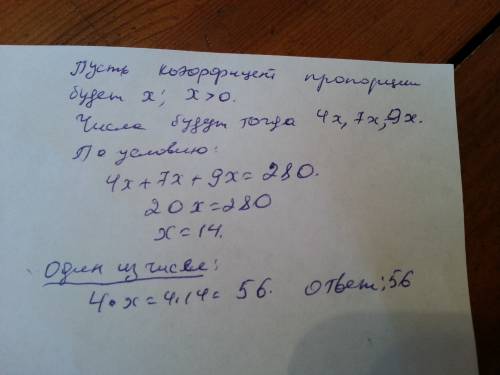 Пусть коэффицент пропорции
будет x; x>0.
Числа будут тогда 4x, 7x, 9x.
По условию:
4x+7x+9x=280.
20x=280
x=14.
Один из чисел:
4•x=4•14= 56. Ответ: 56